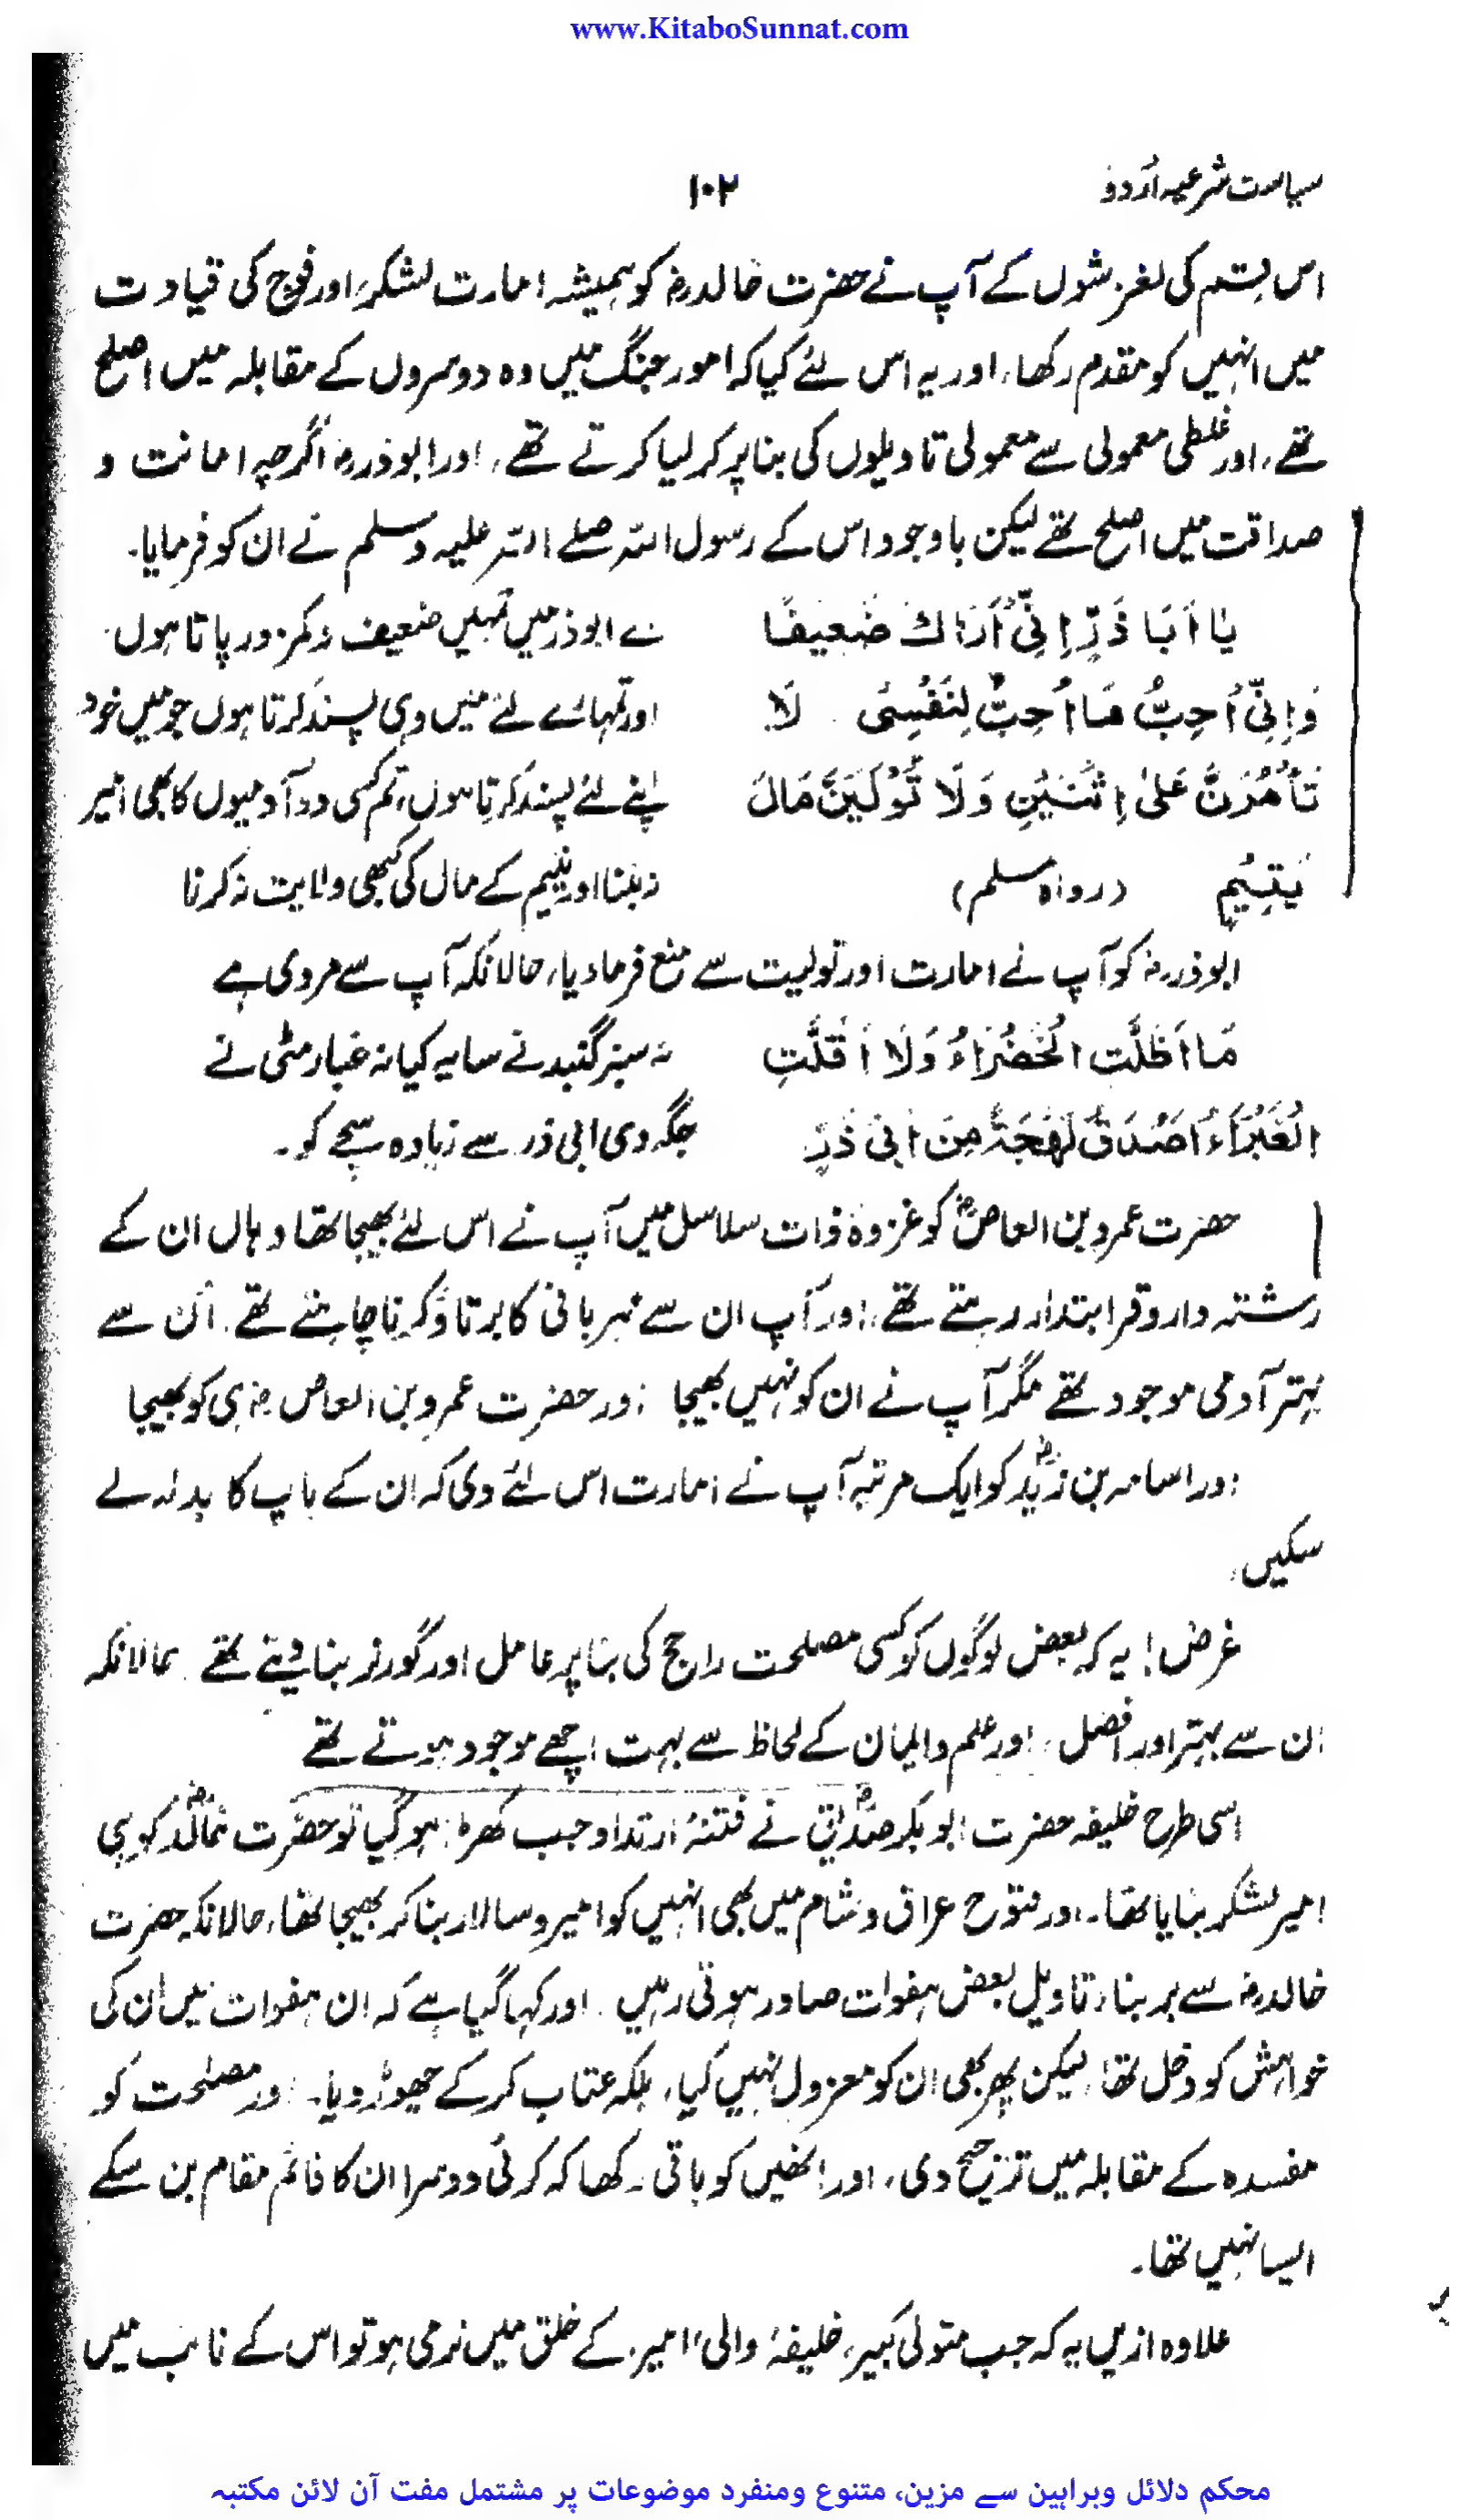 www.KitaboSunnat.com
سیاست شرعیہ اُردو ۱۰۲
اس قسم کی لغزشوں کے آپ نے حضرت خالدرض کو ہمیشہ امارت لشکر، اور فوج کی قیادت
میں انہیں کو مقدم رکھا، اور یہ اس لئے کیا کہ امور جنگ میں وہ دوسروں کے مقابلہ میں اصلح
تھے، اور غلطی معمولی سے معمولی تاویلوں کی بنا پر کر لیا کرتے تھے، اور ابوذررض اگرچہ امانت و
صداقت میں اصلح تھے لیکن باوجود اس کے رسول اللہ صلے اللہ علیہ وسلم نے ان کو فرمایا۔
يَا اَبَا ذَرٍّ اِنِّیْ اَرَاكَ ضَعِيفًا اے ابوذر میں تمہیں ضعیف و کمزور پاتا ہوں
وَاِنِّیْ اُحِبُّ مَا اُحِبُّ لِنَفْسِیْ لَا اور تمہارے لئے میں وہی پسند کرتا ہوں جو میں خود
تَأَمَّرَنَّ عَلیٰ اِثْنَيْنِ وَلَا تُوَلَّيَنَّ مَالَ اپنے لئے پسند کرتا ہوں، تم کسی دو آدمیوں کا بھی امیر
يَتِيْمٍ (رواہ مسلم) نہ بننا اور یتیم کے مال کی کبھی ولایت نہ کرنا
ابوذررض کو آپ نے امارت اور تولیت سے منع فرمادیا، حالانکہ آپ سے مروی ہے
مَا اَظَلَّتِ الْخَضْرَاءُ وَلَا اَقَلَّتِ نہ سبز گنبد نے سایہ کیا نہ غبار مٹی نے
الْغَبْرَاءُ اَصْدَقَ لَهْجَةً مِنْ اَبِیْ ذَرٍّ جگہ دی ابی ذر سے زیادہ سچے کو۔
حضرت عمرو بن العاصؓ کو غزوۂ ذات سلاسل میں آپ نے اس لئے بھیجا تھا وہاں ان کے
رشتہ دار و قرابتدار رہتے تھے، اور آپ ان سے مہربانی کا برتاؤ کرنا چاہتے تھے۔ اُن سے
بہتر آدمی موجود تھے مگر آپ نے ان کو نہیں بھیجا اور حضرت عمرو بن العاص رض ہی کو بھیجا
اور اسامہ بن زیدؓ کو ایک مرتبہ آپ نے امارت اس لئے دی کہ ان کے باپ کا بدلہ لے
سکیں۔
غرض! یہ کہ بعض لوگوں کو کسی مصلحت راجح کی بنا پر عامل اور گورنر بنا دیتے تھے حالانکہ
ان سے بہتر اور افضل، اور علم و ایمان کے لحاظ سے بہت اچھے موجود ہوتے تھے
اسی طرح خلیفہ حضرت ابوبکر صدیقؓ نے فتنۂ ارتداد جب کھڑا ہو گیا تو حضرت خالدؓ کو ہی
امیر لشکر بنایا تھا۔ اور فتوح عراق و شام میں بھی انہیں کو امیر و سالار بنا کر بھیجا تھا، حالانکہ حضرت
خالدرض سے بر بناء تاویل بعض ہفوات صادر ہوتی رہیں۔ اور کہا گیا ہے کہ ان ہفوات میں ان کی
خواہش کو دخل تھا، لیکن پھر بھی ان کو معزول نہیں کیا، بلکہ عتاب کر کے چھوڑ دیا۔ اور مصلحت کو
مفسدہ کے مقابلہ میں ترجیح دی، اور انھیں کو باقی رکھا کہ کوئی دوسرا ان کا قائم مقام بن سکے
ایسا نہیں تھا۔
علاوہ ازیں یہ کہ جب متولی کبیر، خلیفہ، والی، امیر کے خلق میں نرمی ہو تو اس کے نائب میں
محکم دلائل وبراہین سے مزین، متنوع ومنفرد موضوعات پر مشتمل مفت آن لائن مکتبہ